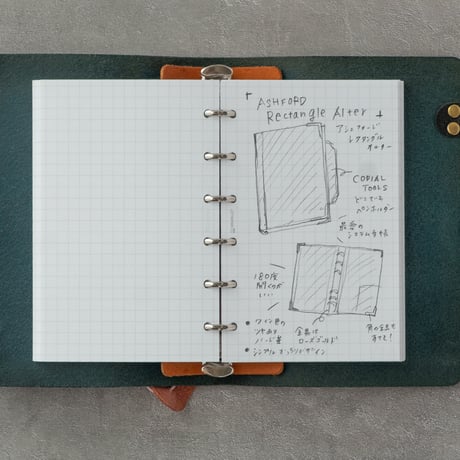 「ASHFORD
Rectangle Alter 」
アシュフォード
レクタングル
オルター
CORIAL
TOOLS
どこでも
ペンホルダー
最愛の
システム手帳
180度
開くのが
いい
● ワイン色の
ツヤあり
ハード革
● シンプル
デザイン
金具は
ローズゴールド
角の金具も
すてき!